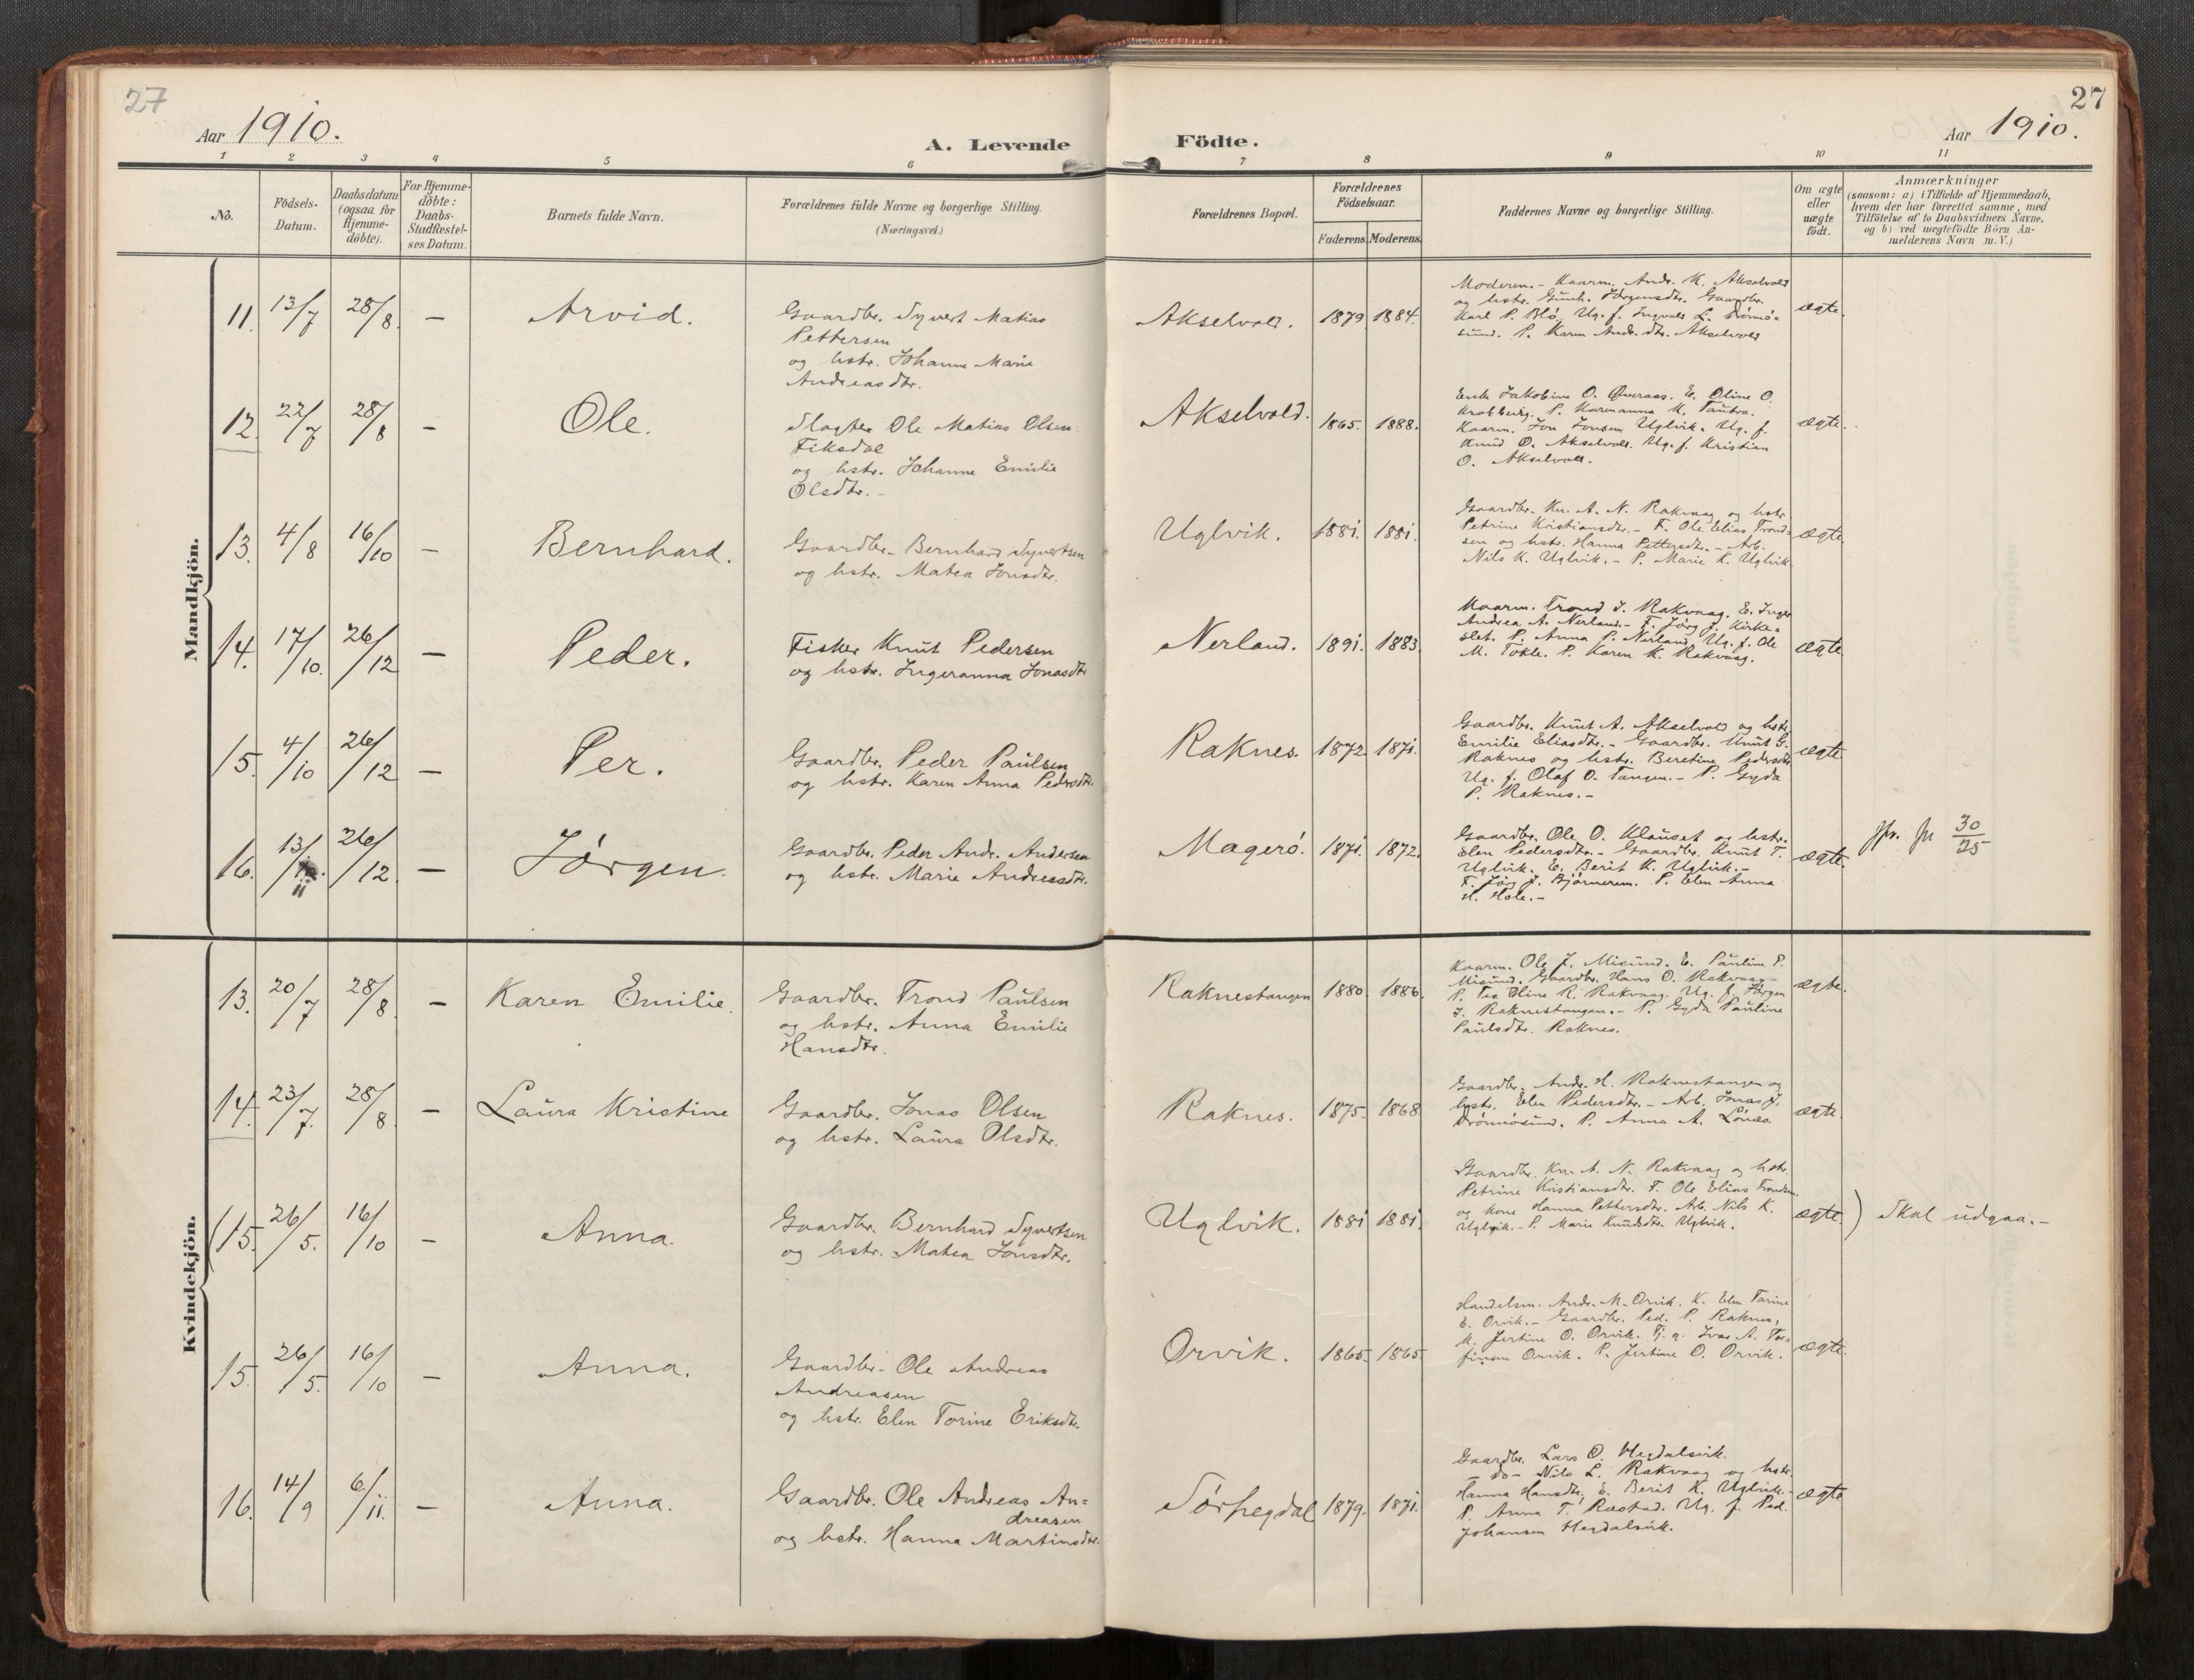 27
Aar 1910.
A. Levende Födte.
27
Aar 1910.
1 2 3 4 5 6 7 8 9 10 11
No.
Födsels-
Datum.
Daabsdatum
(ogsaa for
Hjemme-
döbte).
For Hjemme-
döbte:
Daabs-
Stadfæstel-
ses Datum.
Barnets fulde Navn.
Forældrenes fulde Navne og borgerlige Stilling.
(Næringsvei.)
Forældrenes Bopæl.
Forældrenes
Födselsaar.
Faderens. Moderens.
Faddernes Navne og borgerlige Stilling.
Om ægte
eller
uægte
födt.
Anmærkninger
(saasom: a) i Tilfælde af Hjemmedaab,
hvem der har forrettet samme, med
Tilföielse af to Daabsvidners Navne,
og b) ved uægtefödte Börn An-
melderens Navn m.V.)
Mandkjön.
11. 13/7 28/8 — Arvid.
Gaardbr. Syvert Matias
Pettersen
og hstr. Johanne Marie
Andreasdtr.
Akselvold. 1879 1884.
Moderen. - Kaarm. Andr. K. Akselvold
og hstr. Gunh. Jørgensdtr. Gaardbr.
Karl P. Blø. Ug. f. Ingvald L. Drömö=
sund. P. Karen Andr.dtr. Akselvold
ægte.
12. 22/7 28/8 - Ole.
Slagter Ole Matias Olsen
Fiksdal
og hstr. Johanne Emilie
Olsdtr. -
Akselvold. 1865. 1888.
Enke Jakobine O. Øveraas. E. Oline O.
Krabberig. P. Karenanna K. Tautra.
Kaarm. Jon Jonsen Uglvik. Ug. f.
Knud O. Akselvold. Ug. f. Kristian
O. Akselvold.
ægte.
13. 4/8 16/10 — Bernhard.
Gaardbr. Bernhard Syvertsen
og hstr. Matea Jonsdtr.
Uglvik. 1881. 1881.
Gaardbr. Kn. A. N. Rakvaag og hstr.
Petrine Kristiansdtr. - F. Ole Elias Trond-
sen og hstr. Hanna Pettersdtr. - Arb.
Nils K. Uglvik. - P. Marie K. Uglvik.
ægte.
14. 17/10. 26/12 — Peder.
Fisker Knut Pedersen
og hstr. Ingeranna Jonasdtr
Nerland. 1891. 1883.
Kaarm. Trond J. Rakvaag. E. Inger
Andrea A. Nerland. - F. Jørg J. Kirke=
slet. P. Anna P. Nerland. Ug. f. Ole
M. Tokle. P. Karen K. Rakvaag.
ægte.
15. 4/10 26/12 — Per.
Gaardbr. Peder Paulsen
og hstr. Karen Anna Pedersdtr.
Raknes. 1872. 1871.
Gaardbr. Knut A. Akselvold og hstr.
Emilie Eliasdtr. - Gaardbr. Knut G.
Raknes og hstr. Beretine Pedersdtr
Ug. f. Olaf O. Tangen. - P. Gyda
P. Raknes. -
ægte.
16. 13/11 26/12. — Jörgen.
Gaardbr. Peder Andr. Andersen
og hstr. Marie Andreasdtr.
Magerö. 1871. 1872.
Gaardbr. Ole O. Klauset og hstr.
Elen Pedersdtr. - Gaardbr. Knut T.
Uglvik. E. Berit K. Uglvik. -
F. Jörg J. Björnerem. P. Elen Anna
H. Hole. -
ægte.
30/25
Kvindekjön.
13. 20/7 28/8. — Karen Emilie.
Gaardbr. Trond Paulsen
og hstr. Anna Emilie
Hansdtr.
Raknestangen 1880. 1886.
Kaarm. Ole J. Misund. E. Pauline P.
Misund. Gaardbr. Hans O. Rakvaag -
P. Pea Oline R. Rakvaag. Ug. f. Jørgen
J. Raknestangen. - P. Gyda Pauline
Paulsdtr. Raknes.
ægte.
14. 23/7. 28/8 — Laura Kristine
Gaardbr. Jonas Olsen
og hstr. Laura Olsdtr.
Raknes. 1875. 1868.
Gaardbr. Andr. H. Raknestangen og
hstr. Elen Pedersdtr. - Arb. Jonas J.
Drömösund. P. Anna A. Lönes.
ægte.
(15. 26/5. 16/10 - Anna.
Gaardbr. Bernhard Syvertsen
og hstr. Matea Jonsdtr.
Uglvik. 1881 1881.
Gaardbr. Kn. A. N. Rakvaag og hstr.
Petrine Kristiansdtr. F. Ole Elias Trondsen.
og kone Hanna Pettersdtr. Arb. Nils K.
Uglvik. - P. Marie Knudsdtr. Uglvik.
ægte.) Skal udgaa. -
15. 26/5. 16/10 — Anna.
Gaardbr. - Ole Andreas
Andreasen
og hstr. Elen Torine Eriksdtr.
Orvik. 1865. 1865.
Handelsm. Andr. M. Orvik. K. Elen Torine
E. Orvik. - Gaardbr. Ped. P. Raknes,
K. Jertine O. Orvik. Tj. g. Ivar A. Tor=
finson Orvik. P. Jertine O. Orvik.
ægte.
16. 14/9 6/11. — Anna.
Gaardbr. Ole Andreas An=
dreasen
og hstr. Hanna Martinsdtr.
Sörhegdal 1879. 1871.
Gaardbr. Lars O. Hegdalsvik.
- do - Nils L. Rakvaag og hstr.
Hanna Hansdtr, E. Berit K. Uglvik. -
P. Anna T. Ræstad. Ug. f. Ped.
Johansen Hegdalsvik.
ægte